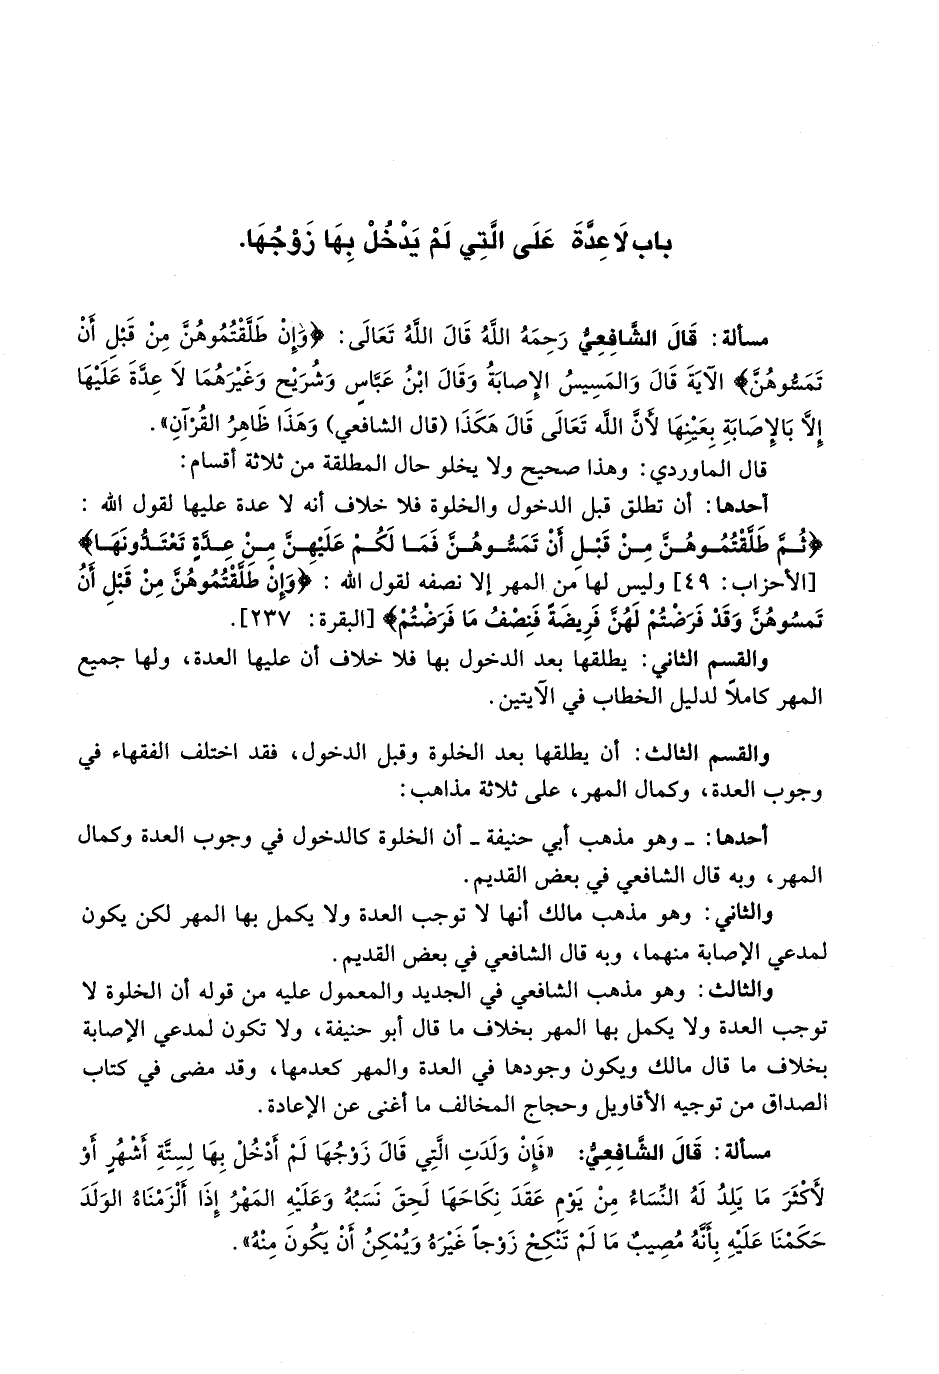 باب لَا عِدَّةَ عَلَى الَّتِي لَمْ يَدْخُلْ بِهَا زَوْجُهَا.
مسألة: قَالَ الشَّافِعِيُّ رَحِمَهُ اللَّهُ قَالَ اللَّهُ تَعَالَى: ﴿وَإِنْ طَلَّقْتُمُوهُنَّ مِنْ قَبْلِ أَنْ
تَمَسُّوهُنَّ﴾ الْآيَةَ قَالَ وَالمَسِيسُ الإِصابَةُ وَقَالَ ابْنُ عَبَّاسٍ وَشُرَيْحٍ وَغَيْرَهُمَا لَا عِدَّةَ عَلَيْهَا
إِلَّا بَالإِصَابَةِ بِعَيْنِهَا لأَنَّ اللَّه تَعَالَى قَالَ هَكَذَا (قال الشافعي) وَهَذَا ظَاهِرُ القُرْآنِ».
قال الماوردي: وهذا صحيح ولا يخلو حال المطلقة من ثلاثة أقسام:
أحدها: أن تطلق قبل الدخول والخلوة فلا خلاف أنه لا عدة عليها لقول الله :
﴿ثُمَّ طَلَّقْتُمُوهُنَّ مِنْ قَبْلِ أَنْ تَمَسُّوهُنَّ فَمَا لَكُمْ عَلَيْهِنَّ مِنْ عِدَّةٍ تَعْتَدُّونَهَا﴾
[الأحزاب: ٤٩] وليس لها من المهر إلا نصفه لقول الله : ﴿وَإِنْ طَلَّقْتُمُوهُنَّ مِنْ قَبْلِ أَنْ
تَمسُوهُنَّ وَقَدْ فَرَضْتُمْ لَهُنَّ فَرِيضَةً فَنِصْفُ مَا فَرَضْتُمْ﴾ [البقرة: ٢٣٧].
والقسم الثاني: يطلقها بعد الدخول بها فلا خلاف أن عليها العدة، ولها جميع
المهر كاملاً لدليل الخطاب في الآيتين.
والقسم الثالث: أن يطلقها بعد الخلوة وقبل الدخول، فقد اختلف الفقهاء في
وجوب العدة، وكمال المهر، على ثلاثة مذاهب:
أحدها: ـ وهو مذهب أبي حنيفة ـ أن الخلوة كالدخول في وجوب العدة وكمال
المهر، وبه قال الشافعي في بعض القديم.
والثاني: وهو مذهب مالك أنها لا توجب العدة ولا يكمل بها المهر لكن يكون
لمدعي الإصابة منهما، وبه قال الشافعي في بعض القديم.
والثالث: وهو مذهب الشافعي في الجديد والمعمول عليه من قوله أن الخلوة لا
توجب العدة ولا يكمل بها المهر بخلاف ما قال أبو حنيفة، ولا تكون لمدعي الإصابة
بخلاف ما قال مالك ويكون وجودها في العدة والمهر كعدمها، وقد مضى في كتاب
الصداق من توجيه الأقاويل وحجاج المخالف ما أغنى عن الإعادة.
مسألة: قَالَ الشَّافِعِيُّ: «فَإِنْ وَلَدَتِ الَّتِي قَالَ زَوْجُهَا لَمْ أَدْخُلْ بِهَا لِسِتَّةِ أَشْهُرٍ أَوْ
لأَكْثَرَ مَا يَلِدُ لَهُ النِّسَاءُ مِنْ يَوْمِ عَقَدَ نِكَاحَهَا لَحِقَ نَسَبُهُ وَعَلَيْهِ المَهْرُ إِذَا أَلْزَمْنَاهُ الوَلَدَ
حَكَمْنَا عَلَيْهِ بِأَنَّهُ مُصِيبٌ مَا لَمْ تَنْكِحْ زَوْجاً غَيْرَهُ وَيُمْكِنُ أَنْ يَكُونَ مِنْهُ».